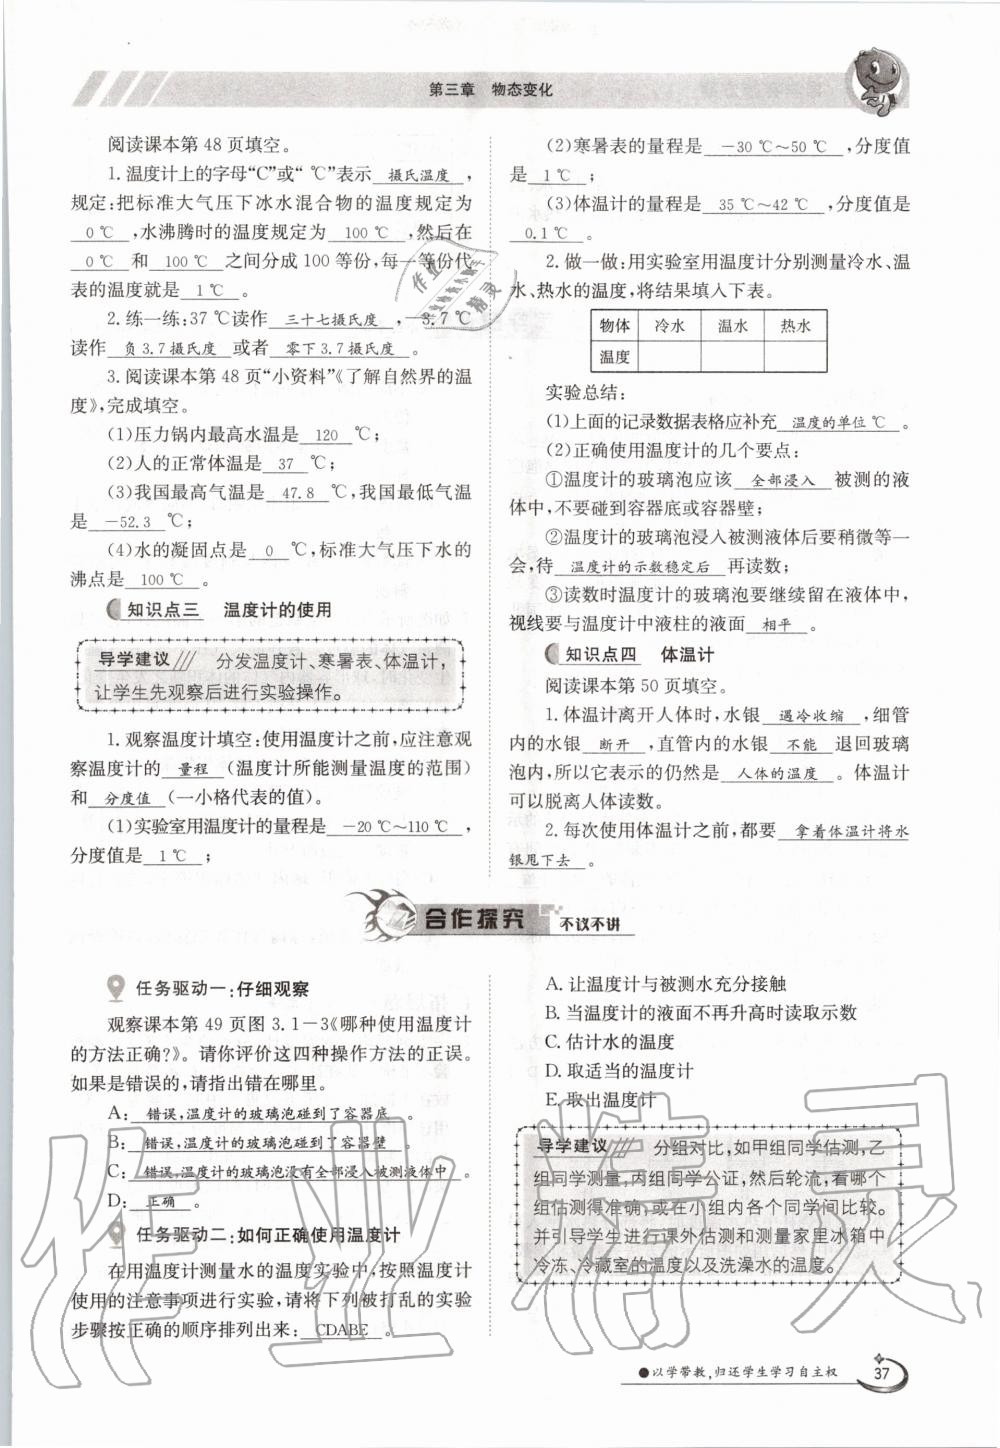 第三章　物态变化
阅读课本第 48 页填空。
1.温度计上的字母“C”或“ ℃”表示 摄氏温度 ,
规定:把标准大气压下冰水混合物的温度规定为
0 ℃ ,水沸腾时的温度规定为 100 ℃ ,然后在
0 ℃ 和 100 ℃ 之间分成 100 等份,每一等份代
表的温度就是 1℃ 。
2.练一练:37 ℃读作 三十七摄氏度 ,－3.7 ℃
读作 负 3.7 摄氏度 或者 零下 3.7 摄氏度 。
3.阅读课本第 48 页“小资料”《了解自然界的温
度》,完成填空。
(1)压力锅内最高水温是 120 ℃;
(2)人的正常体温是 37 ℃;
(3)我国最高气温是 47.8 ℃,我国最低气温
是 －52.3 ℃;
(4)水的凝固点是 0 ℃,标准大气压下水的
沸点是 100 ℃ 。
知识点三　温度计的使用
导学建议 分发温度计、寒暑表、体温计,
让学生先观察后进行实验操作。
1.观察温度计填空:使用温度计之前,应注意观
察温度计的 量程 (温度计所能测量温度的范围)
和 分度值 (一小格代表的值)。
(1)实验室用温度计的量程是 －20 ℃～110 ℃ ,
分度值是 1 ℃ ;
(2)寒暑表的量程是 －30 ℃～50 ℃ ,分度值
是 1 ℃ ;
(3)体温计的量程是 35 ℃～42 ℃ ,分度值是
0.1 ℃ 。
2.做一做:用实验室用温度计分别测量冷水、温
水、热水的温度,将结果填入下表。
物体 冷水 温水 热水
温度
实验总结:
(1)上面的记录数据表格应补充 温度的单位 ℃ 。
(2)正确使用温度计的几个要点:
①温度计的玻璃泡应该 全部浸入 被测的液
体中,不要碰到容器底或容器壁;
②温度计的玻璃泡浸入被测液体后要稍微等一
会,待 温度计的示数稳定后 再读数;
③读数时温度计的玻璃泡要继续留在液体中,
视线要与温度计中液柱的液面 相平 。
知识点四　体温计
阅读课本第 50 页填空。
1.体温计离开人体时,水银 遇冷收缩 ,细管
内的水银 断开 ,直管内的水银 不能 退回玻璃
泡内,所以它表示的仍然是 人体的温度 。体温计
可以脱离人体读数。
2.每次使用体温计之前,都要 拿着体温计将水
银甩下去 。
合作探究 不议不讲
任务驱动一:仔细观察
观察课本第 49 页图 3.1－3《哪种使用温度计
的方法正确?》。请你评价这四种操作方法的正误。
如果是错误的,请指出错在哪里。
A: 错误,温度计的玻璃泡碰到了容器底 。
B: 错误,温度计的玻璃泡碰到了容器壁 。
C: 错误,温度计的玻璃泡没有全部浸入被测液体中 。
D: 正确 。
任务驱动二:如何正确使用温度计
在用温度计测量水的温度实验中,按照温度计
使用的注意事项进行实验,请将下列被打乱的实验
步骤按正确的顺序排列出来: CDABE 。
A. 让温度计与被测水充分接触
B. 当温度计的液面不再升高时读取示数
C. 估计水的温度
D. 取适当的温度计
E. 取出温度计
导学建议 分组对比,如甲组同学估测,乙
组同学测量,丙组同学公证,然后轮流,看哪个
组估测得准确,或在小组内各个同学间比较。
并引导学生进行课外估测和测量家里冰箱中
冷冻、冷藏室的温度以及洗澡水的温度。
●以学带教,归还学生学习自主权
37
作业精灵